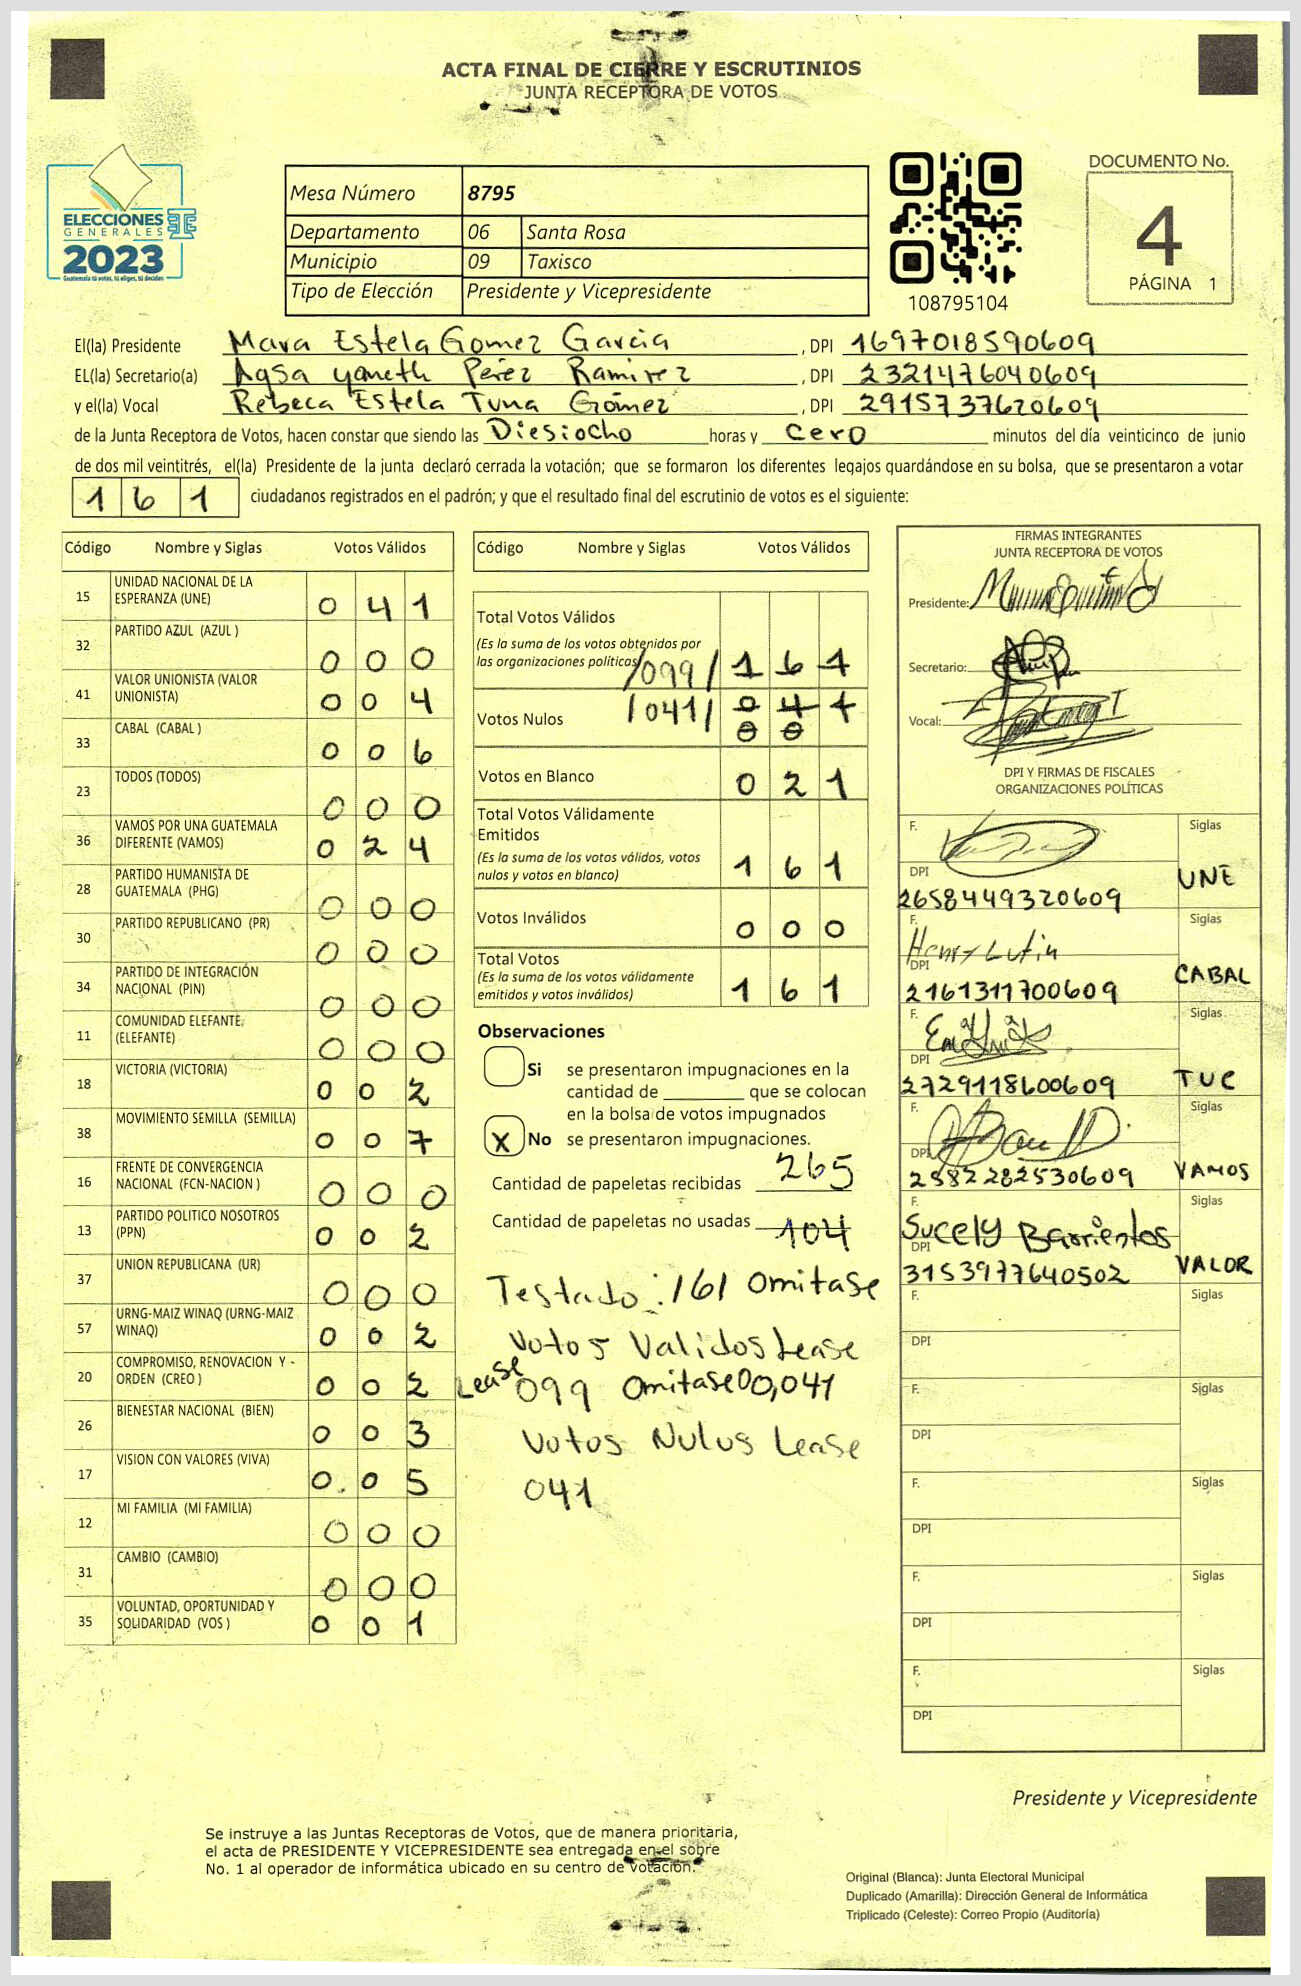 ACTA FINAL DE CIERRE Y ESCRUTINIOS
JUNTA RECEPTORA DE VOTOS
ELECCIONES
GENERALES
2023
Guatemala tú votas, tú eliges, tú decides
Mesa Número 8795
Departamento 06 Santa Rosa
Municipio 09 Taxisco
Tipo de Elección Presidente y Vicepresidente
108795104
DOCUMENTO No.
4
PÁGINA 1
El(la) Presidente Mara Estela Gomez Garcia , DPI 1697018590609
EL(la) Secretario(a) Aqsa yaneth Pérez Ramirez , DPI 2321476040609
y el(la) Vocal Rebeca Estela Tuna Gómez , DPI 2915737620609
de la Junta Receptora de Votos, hacen constar que siendo las Diesiocho horas y cero minutos del día veinticinco de junio
de dos mil veintitrés, el(la) Presidente de la junta declaró cerrada la votación; que se formaron los diferentes legajos quardándose en su bolsa, que se presentaron a votar
161 ciudadanos registrados en el padrón; y que el resultado final del escrutinio de votos es el siguiente:
Código Nombre y Siglas Votos Válidos
15 UNIDAD NACIONAL DE LA ESPERANZA (UNE) 0 4 1
32 PARTIDO AZUL (AZUL ) 0 0 0
41 VALOR UNIONISTA (VALOR UNIONISTA) 0 0 4
33 CABAL (CABAL ) 0 0 6
23 TODOS (TODOS) 0 0 0
36 VAMOS POR UNA GUATEMALA DIFERENTE (VAMOS) 0 2 4
28 PARTIDO HUMANISTA DE GUATEMALA (PHG) 0 0 0
30 PARTIDO REPUBLICANO (PR) 0 0 0
34 PARTIDO DE INTEGRACIÓN NACIONAL (PIN) 0 0 0
11 COMUNIDAD ELEFANTE. (ELEFANTE) 0 0 0
18 VICTORIA (VICTORIA) 0 0 2
38 MOVIMIENTO SEMILLA (SEMILLA) 0 0 7
16 FRENTE DE CONVERGENCIA NACIONAL (FCN-NACION ) 0 0 0
13 PARTIDO POLITICO NOSOTROS (PPN) 0 0 2
37 UNION REPUBLICANA (UR) 0 0 0
57 URNG-MAIZ WINAQ (URNG-MAIZ WINAQ) 0 0 2
20 COMPROMISO, RENOVACION Y - ORDEN (CREO ) 0 0 2
26 BIENESTAR NACIONAL (BIEN) 0 0 3
17 VISION CON VALORES (VIVA) 0 0 5
12 MI FAMILIA (MI FAMILIA) 0 0 0
31 CAMBIO (CAMBIO) 0 0 0
35 VOLUNTAD, OPORTUNIDAD Y SOLIDARIDAD (VOS ) 0 0 1
Código Nombre y Siglas Votos Válidos
Total Votos Válidos
(Es la suma de los votos obtenidos por
las organizaciones políticas) /099/ 1 6 1
Votos Nulos /041/ 0 4 1
0 0
Votos en Blanco 0 2 1
Total Votos Válidamente
Emitidos
(Es la suma de los votos válidos, votos
nulos y votos en blanco) 1 6 1
Votos Inválidos 0 0 0
Total Votos
(Es la suma de los votos válidamente
emitidos y votos inválidos) 1 6 1
Observaciones
Si se presentaron impugnaciones en la
cantidad de ________ que se colocan
en la bolsa de votos impugnados
X No se presentaron impugnaciones.
Cantidad de papeletas recibidas 265
Cantidad de papeletas no usadas 104
Testado : 161 Omitase
Votos Validos Lease
Lease 099 Omitase 00,041
Votos Nulos Lease
041
FIRMAS INTEGRANTES
JUNTA RECEPTORA DE VOTOS
Presidente:
Secretario:
Vocal:
DPI Y FIRMAS DE FISCALES
ORGANIZACIONES POLÍTICAS
F. Siglas
DPI 2658449320609 UNE
F. Henry Siglas
DPI 2161311700609 CABAL
F. Siglas
DPI 2729118600609 TUC
F. Siglas
DPI 2582282530609 VAMOS
F. Sucely Barrientos Siglas
DPI 3153977640502 VALOR
F. Siglas
DPI
F. Siglas
DPI
F. Siglas
DPI
F. Siglas
DPI
F. Siglas
DPI
Presidente y Vicepresidente
Se instruye a las Juntas Receptoras de Votos, que de manera prioritaria,
el acta de PRESIDENTE Y VICEPRESIDENTE sea entregada en el sobre
No. 1 al operador de informática ubicado en su centro de votación.
Original (Blanca): Junta Electoral Municipal
Duplicado (Amarilla): Dirección General de Informática
Triplicado (Celeste): Correo Propio (Auditoría)